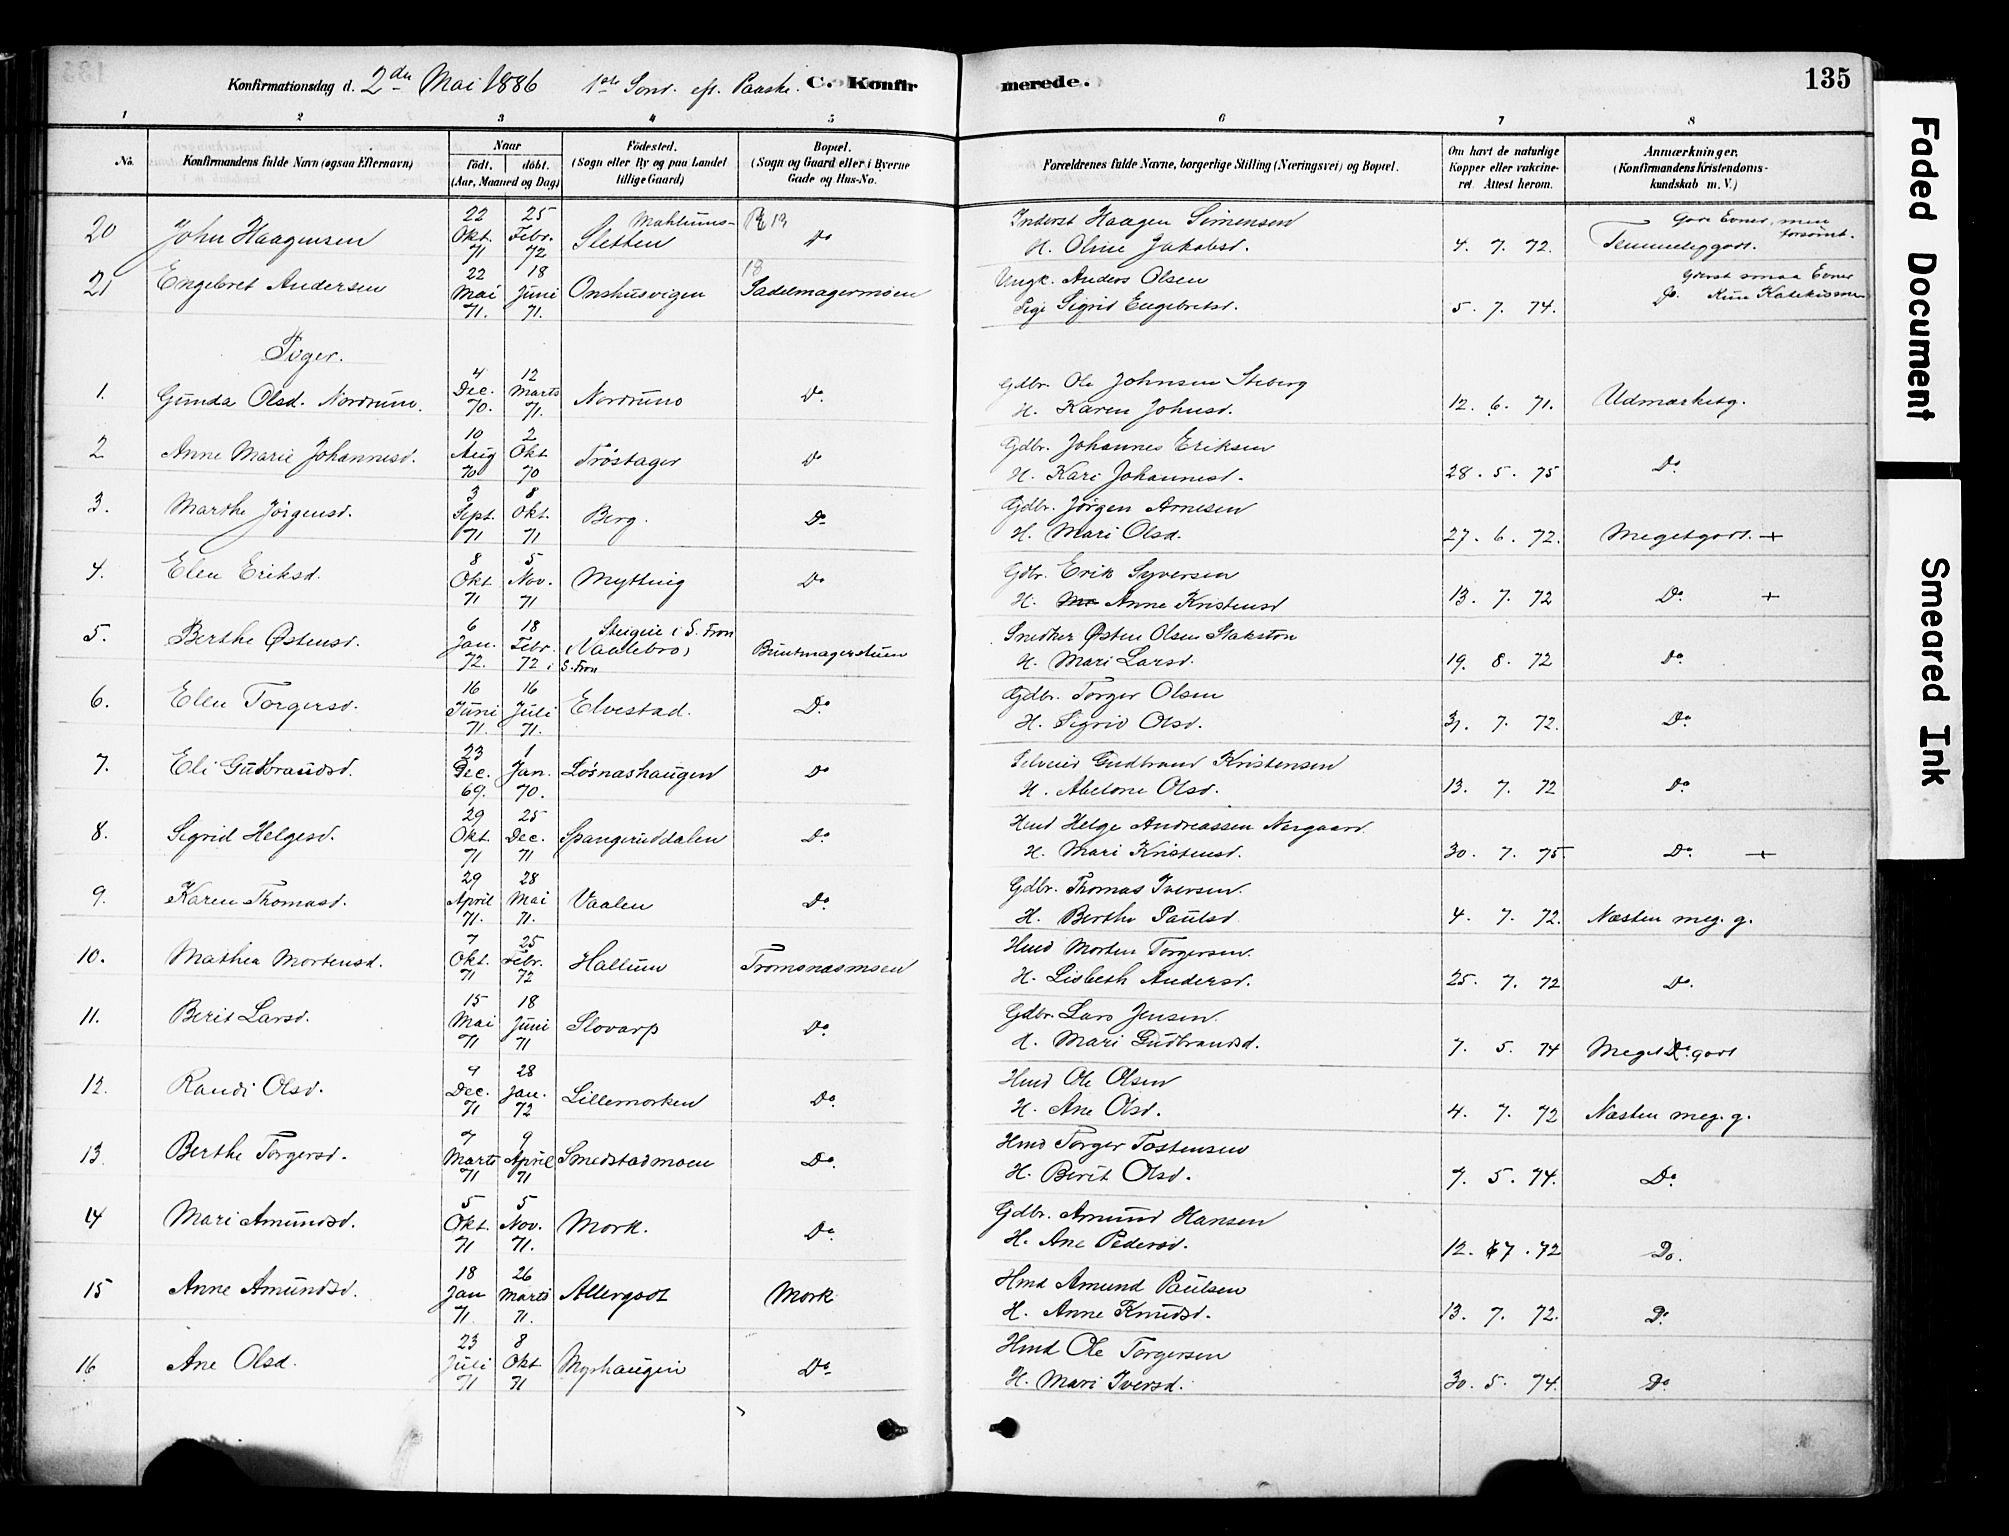 Konfirmationsdag d. 2den Mai 1886 1ste Sønd. eft. Paaske. C. Konfirmerede. 135
1 2 3 4 5 6 7 8
No. Konfirmandens fulde Navn (ogsaa Efternavn) Naar født. døbt. (Aar, Maaned og Dag) Fødested. (Sogn eller By og paa Landet tillige Gaard) Bopæl. (Sogn og Gaard eller i Byerne Gade og Hus-No. Forældrenes fulde Navne, borgerlige Stilling (Næringsvei) og Bopæl. Om havt de naturlige Kopper eller vakcineret. Attest herom. Anmærkninger. (Konfirmandens Kristendomskundskab m. V.)
20 John Haagensen 22 Okt. 71 25 Febr. 72 Mahlums-Sletten 13 Do Inderst Haagen Simensen H. Oline Jakobsd. 4. 7. 72. Temmeliggodt. Gode Evner, men forsømt.
21 Engebret Andersen 22 Mai 71. 18 Juni 71. Onshusvigen 18 Sadelmagermoen Ungk. Anders Olsen Pige Sigrid Engebretsd. 5. 7. 74. Do. Yderst smaa Evner Kun Katekismen
Piger.
1. Gunda Olsd. Nordrum. 4 Dec. 70. 12 Marts 71. Nordrum Do Gdbr. Ole Johnsen Steberg H. Karen Johnsd. 12. 6. 71. Udmærketg.
2 Anne Marie Johannesd. 10 Aug 70 2 Okt 70 Trøstager Do Gdbr. Johannes Eriksen H. Kari Johannesd. 28. 5. 75 Do
3. Marthe Jørgensd. 3 Sept. 71 8 Okt. 71 Berg. Do Gdbr. Jørgen Arnesen H. Mari Olsd. 27. 6. 72. Megetgodt. +
4. Elen Eriksd. 8 Okt 71 5 Nov. 71 Mytting Do Gdbr. Erik Syversen H. Anne Kristensd 13. 7. 72 Do. +
5. Berthe Østensd. 6 Jan. 72. 18 Febr. 72 Steigen i S. Fron (Vaalebro) i S. Fron Buntmagerstuen Snedker Østen Olsen Stakston H. Mari Larsd. 19. 8. 72 Do
6. Elen Torgersd. 16 Juni 71. 16 Juli 71. Elvestad. Do. Gdbr. Torger Olsen H. Sigrid Olsd. 31. 7. 72. Do
7. Eli Gudbrandsd. 23 Dec. 69. 1 Jan. 70. Løsnashaugen Do Selveier Gudbrand Kristensen H. Abelone Olsd. 13. 7. 72 Do
8. Sigrid Helgesd. 29 Okt 71 25 Dec. 71 Spangruddalen Do. Hmd Helge Andreassen Nergaard H. Mari Kristensd. 30. 7. 75. Do. +
9. Karen Thomasd. 29 April 71. 28 Mai 71. Vaalen Do. Gdbr. Thomas Iversen. H. Berthe Paulsd. 4. 7. 72. Næsten meg. g.
10. Mathea Mortensd. 7 Okt. 71 25 Febr. 72 Hallum Tromsnæsmoen Hmd Morten Torgersen. H. Lisbeth Andersd. 25. 7. 72 Do.
11. Berit Larsd. 15 Mai 71 18 Juni 71 Slovarp Do. Gdbr. Lars Jensen. H. Mari Gudbrandsd. 7. 5. 74 Meget godt
12. Randi Olsd. 4 Dec. 71 28 Jan. 72 Lillemorken Do. Hmd Ole Olsen H. Ane Olsd. 4. 7. 72 Næsten meg. g.
13 Berthe Torgersd. 7 Marts 71 9 April 71 Smedstadmoen Do. Hmd Torger Tostensen H. Berit Olsd. 7. 5. 74. Do
14 Mari Amundsd. 5 Okt. 71 5 Nov. 71. Mork. Do Gdbr. Amund Hansen H. Ane Pedersd. 12. 7. 72 Do.
15 Anne Amundsd. 18 Jan 71. 26 Marts 71. Allergodt Mork Hmd Amund Paulsen H. Anne Knudsd. 13. 7. 72. Do
16 Ane Olsd. 23 Juli 71 8 Okt 71 Myrhaugen Do Hmd Ole Torgersen H. Mari Iversd. 30. 5. 74. Do
Faded Document
Smeared Ink